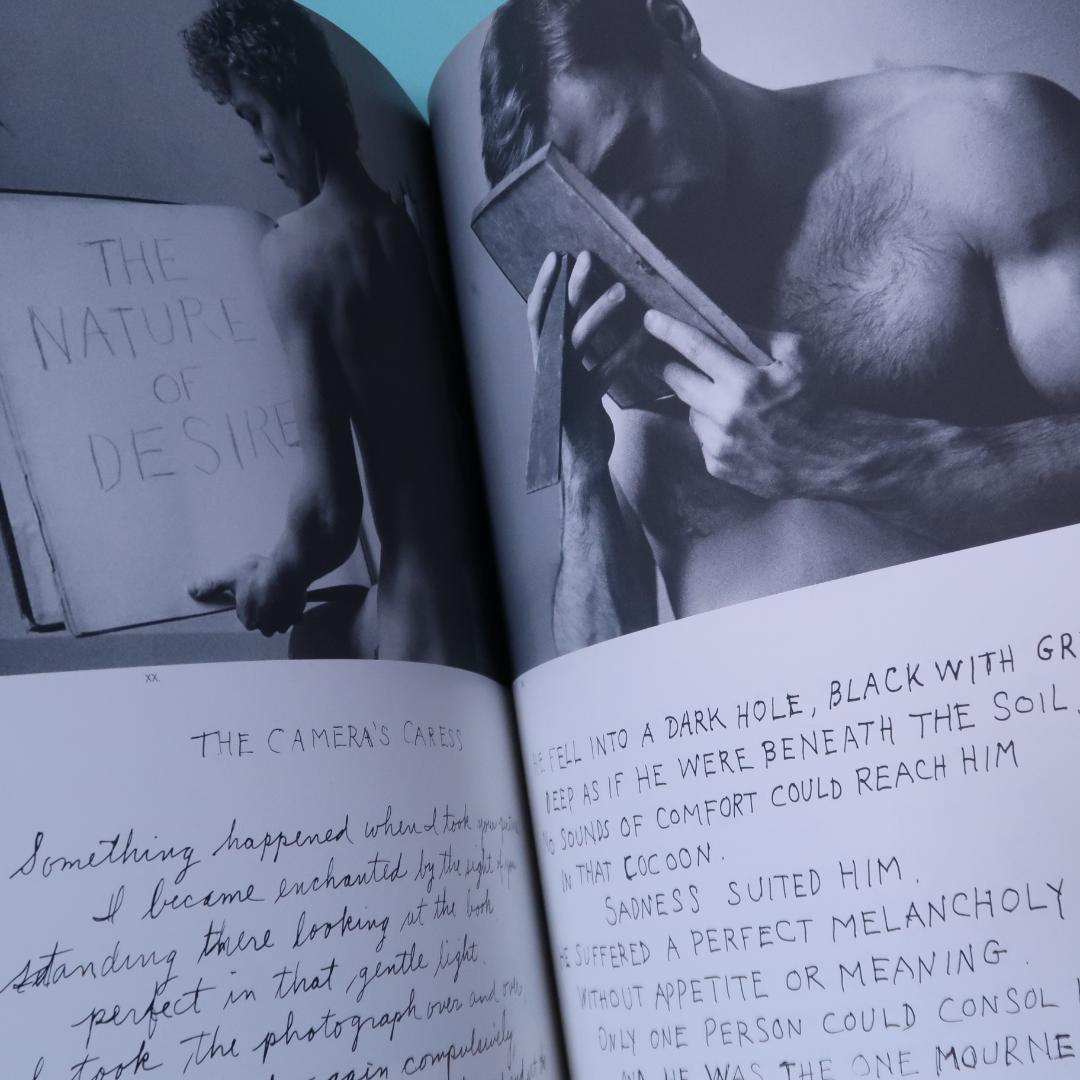 THE
NATURE
OF
DESIRE
XX.
THE CAMERA'S CARESS
Something happened when I took your
I became enchanted by the sight of you
standing there looking at the book
perfect in that gentle light.
I took the photograph over and over,
again compulsively
HE FELL INTO A DARK HOLE, BLACK WITH GR
DEEP AS IF HE WERE BENEATH THE SOIL.
NO SOUNDS OF COMFORT COULD REACH HIM
IN THAT COCOON.
SADNESS SUITED HIM.
HE SUFFERED A PERFECT MELANCHOLY
WITHOUT APPETITE OR MEANING.
ONLY ONE PERSON COULD CONSOL
AND HE WAS THE ONE MOURNE